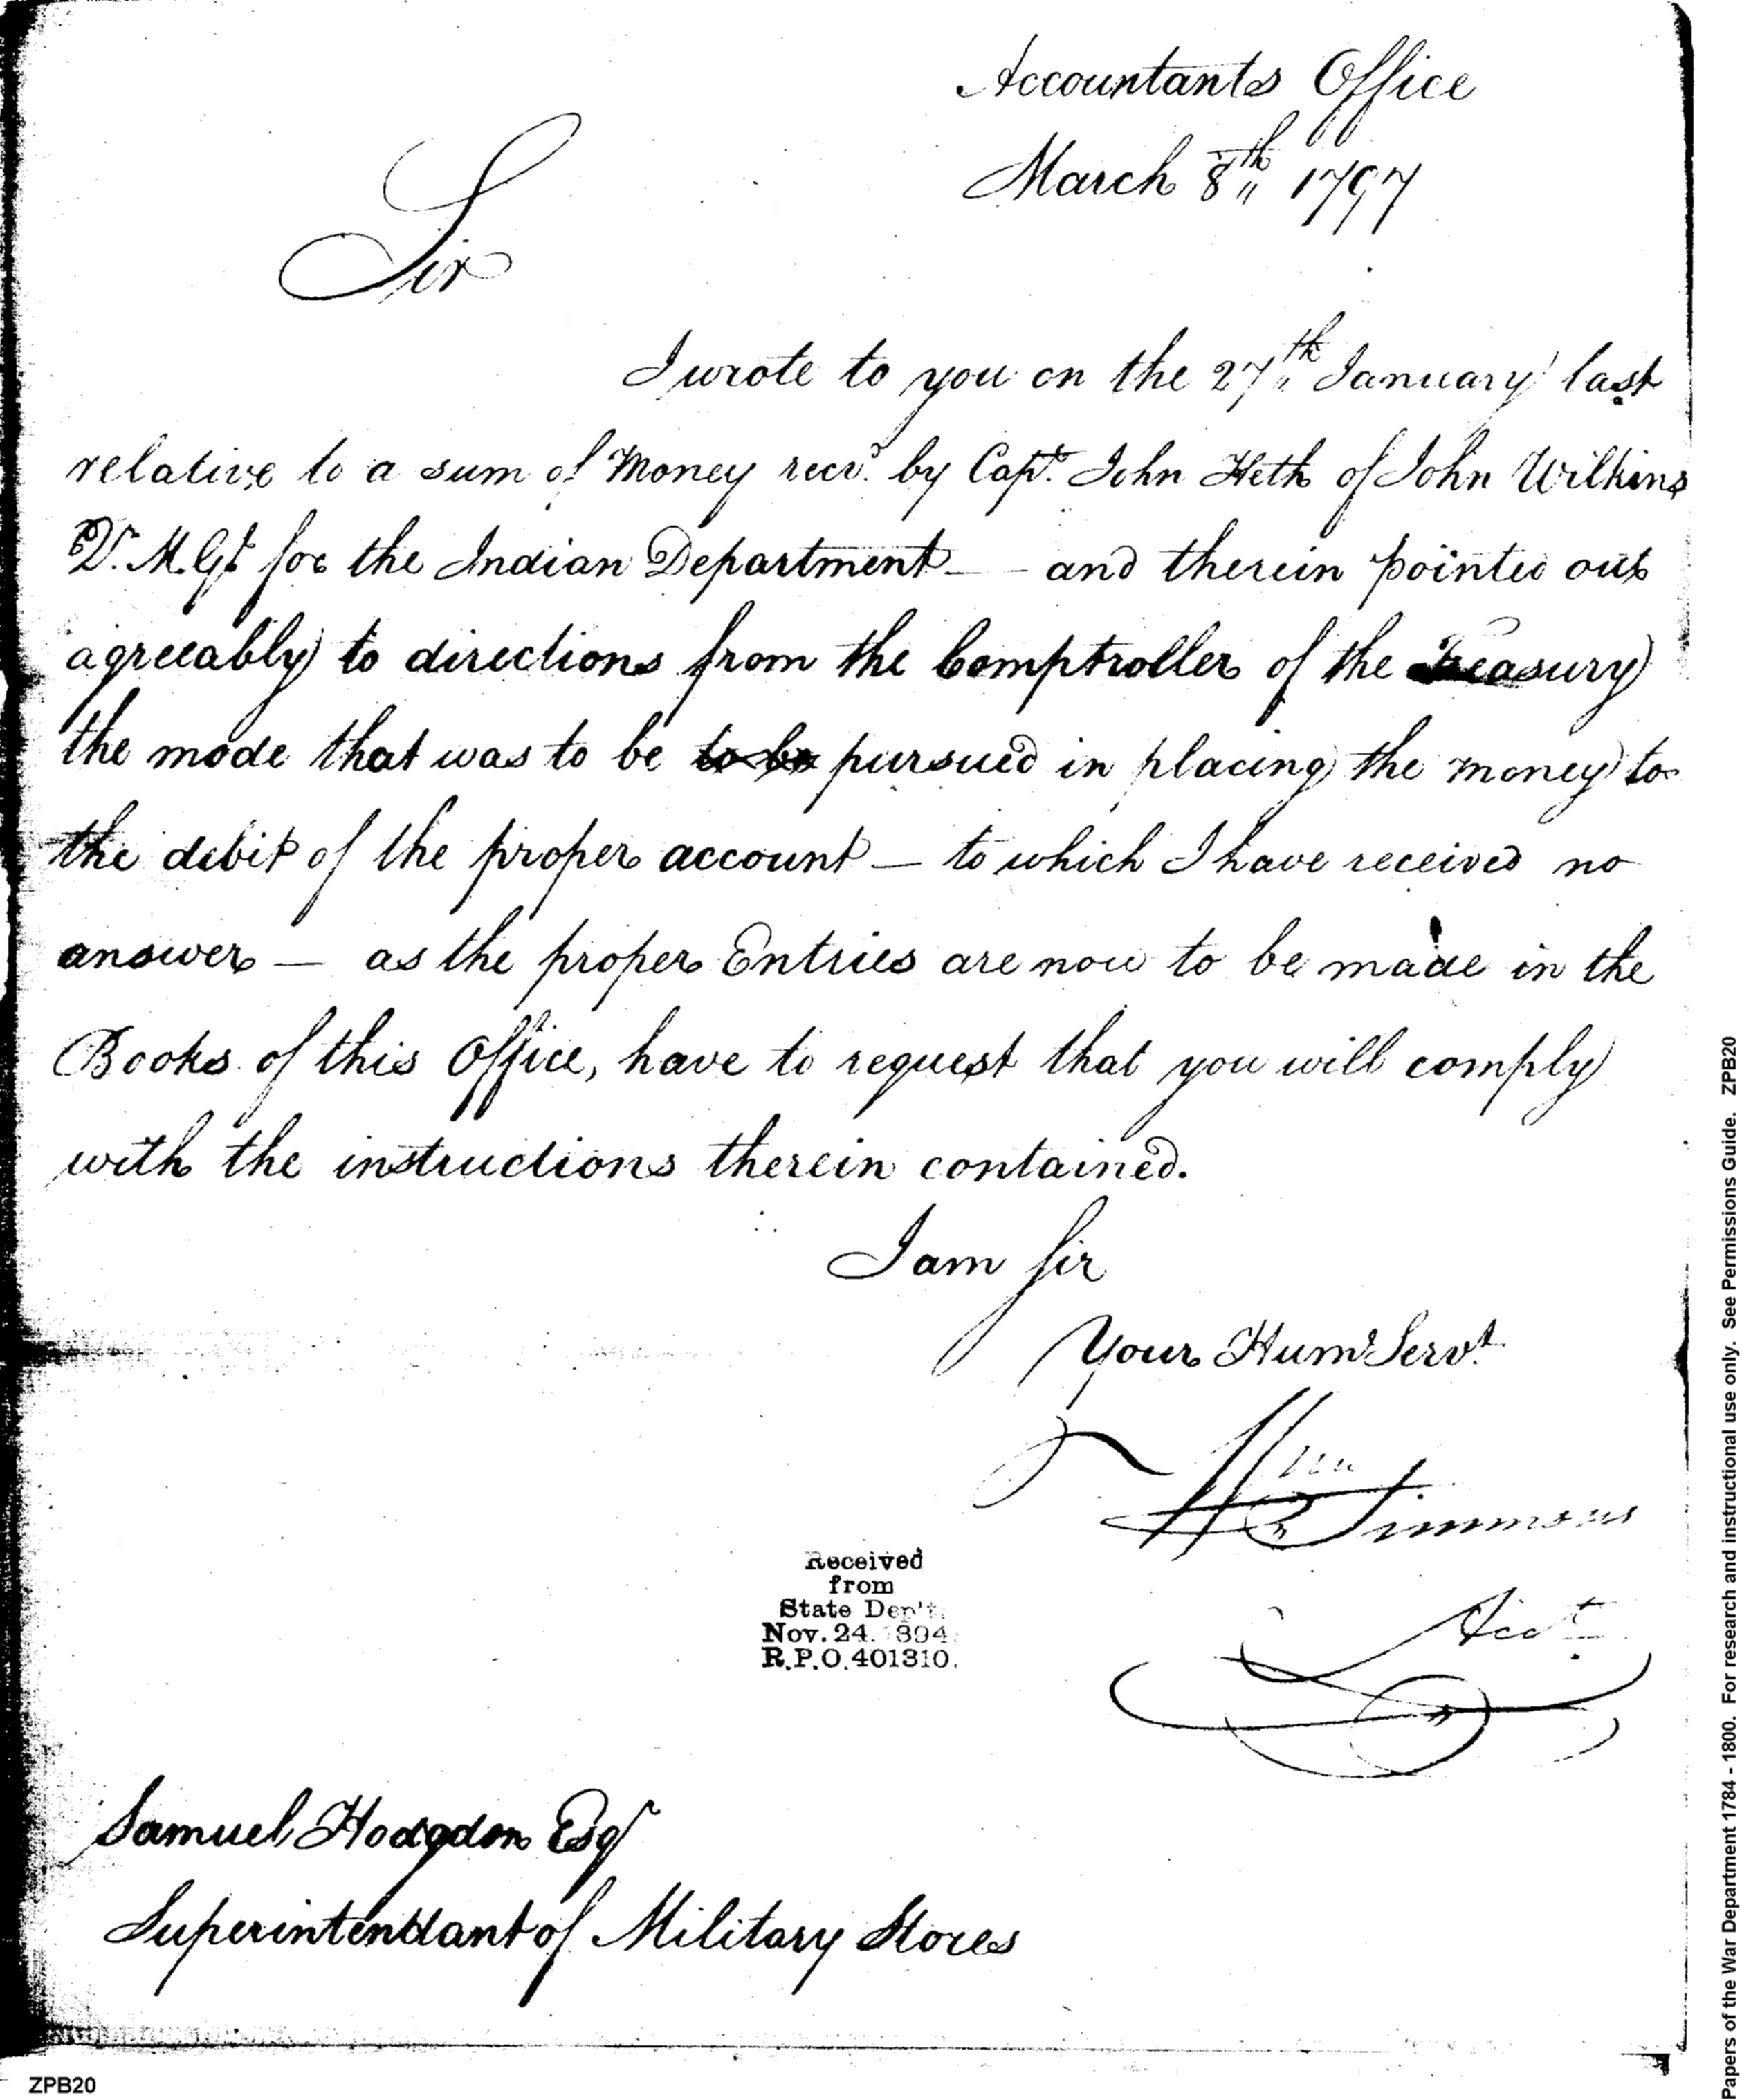 Accountants Office
March 8th 1797
Sir
I wrote to you on the 27th January last
relative to a sum of Money recvd. by Capt. John Heth of John Wilkins
Q.M.Gl for the Indian Department — and therein pointed out
agreeably to directions from the Comptroller of the Treasury
the mode that was to be to be pursued in placing the money to
the debit of the proper account — to which I have received no
answer — as the proper Entries are now to be made in the
Books of this Office, have to request that you will comply
with the instructions therein contained.
I am Sir
Your Hume Servt
Wm Simmons
Acct
Received
from
State Dep't.
Nov. 24. 1894.
R.P.O. 401310.
Samuel Hodgdon Esqr
Superintendant of Military Stores
ZPB20
Papers of the War Department 1784 - 1800. For research and instructional use only. See Permissions Guide. ZPB20